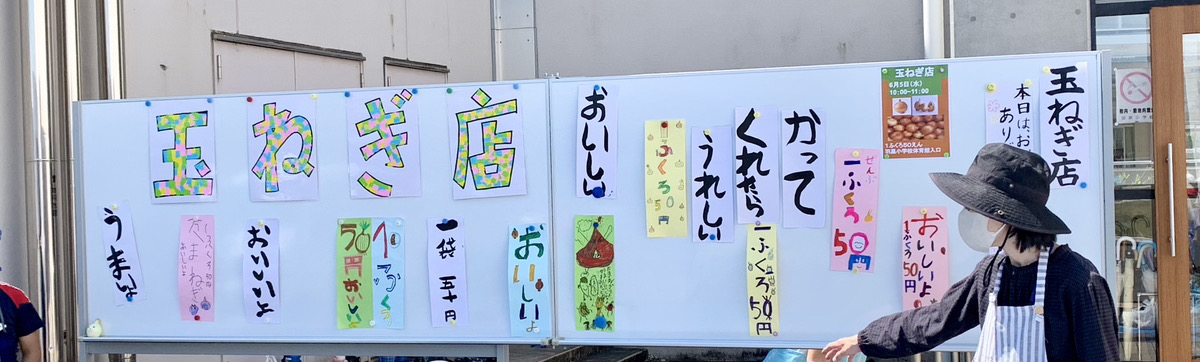 玉ねぎ店
うまいよ
おいしいよ
おいいいよ
50円おいしい
一ふくろ
一袋 五十円
おいしいよ
おいしい
一ふくろ50円
うれしい
くれたら
かって
一ふくろ50円
ぜんぶ
一ふくろ
50円
玉ねぎ店
6月5日(水)
10:00~11:00
1ふくろ50えん
おいしいよ
1ふくろ
50円
本日は、お
あり
玉ねぎ店